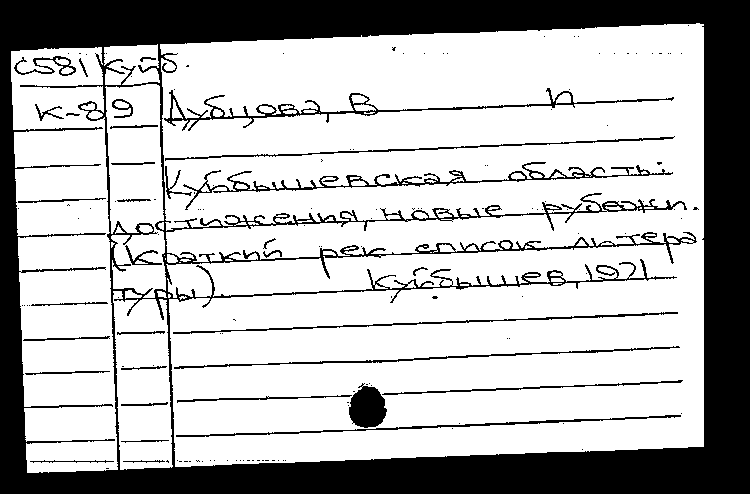 С581 Куйб.
К-89 Дубцова, В п
Куйбышевская область:
достижения, новые рубежи.
(Краткий рек список литера
туры). Куйбышев, 1971